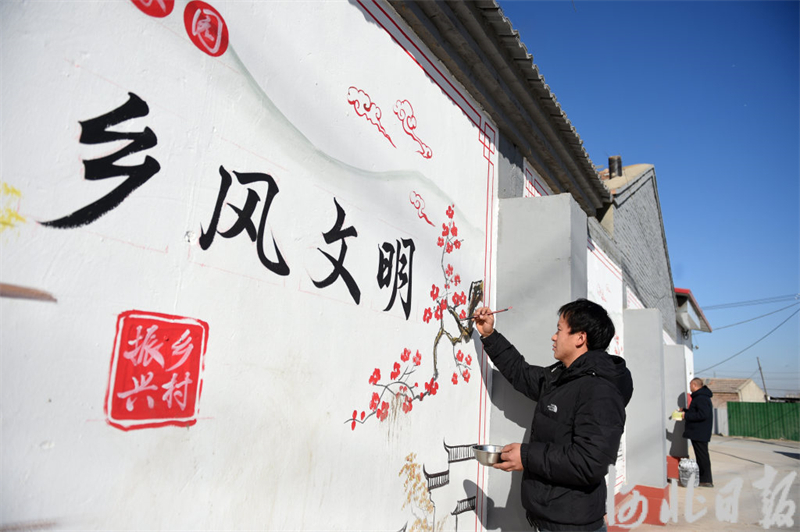 家园
乡风文明
乡村
振兴
河北日报